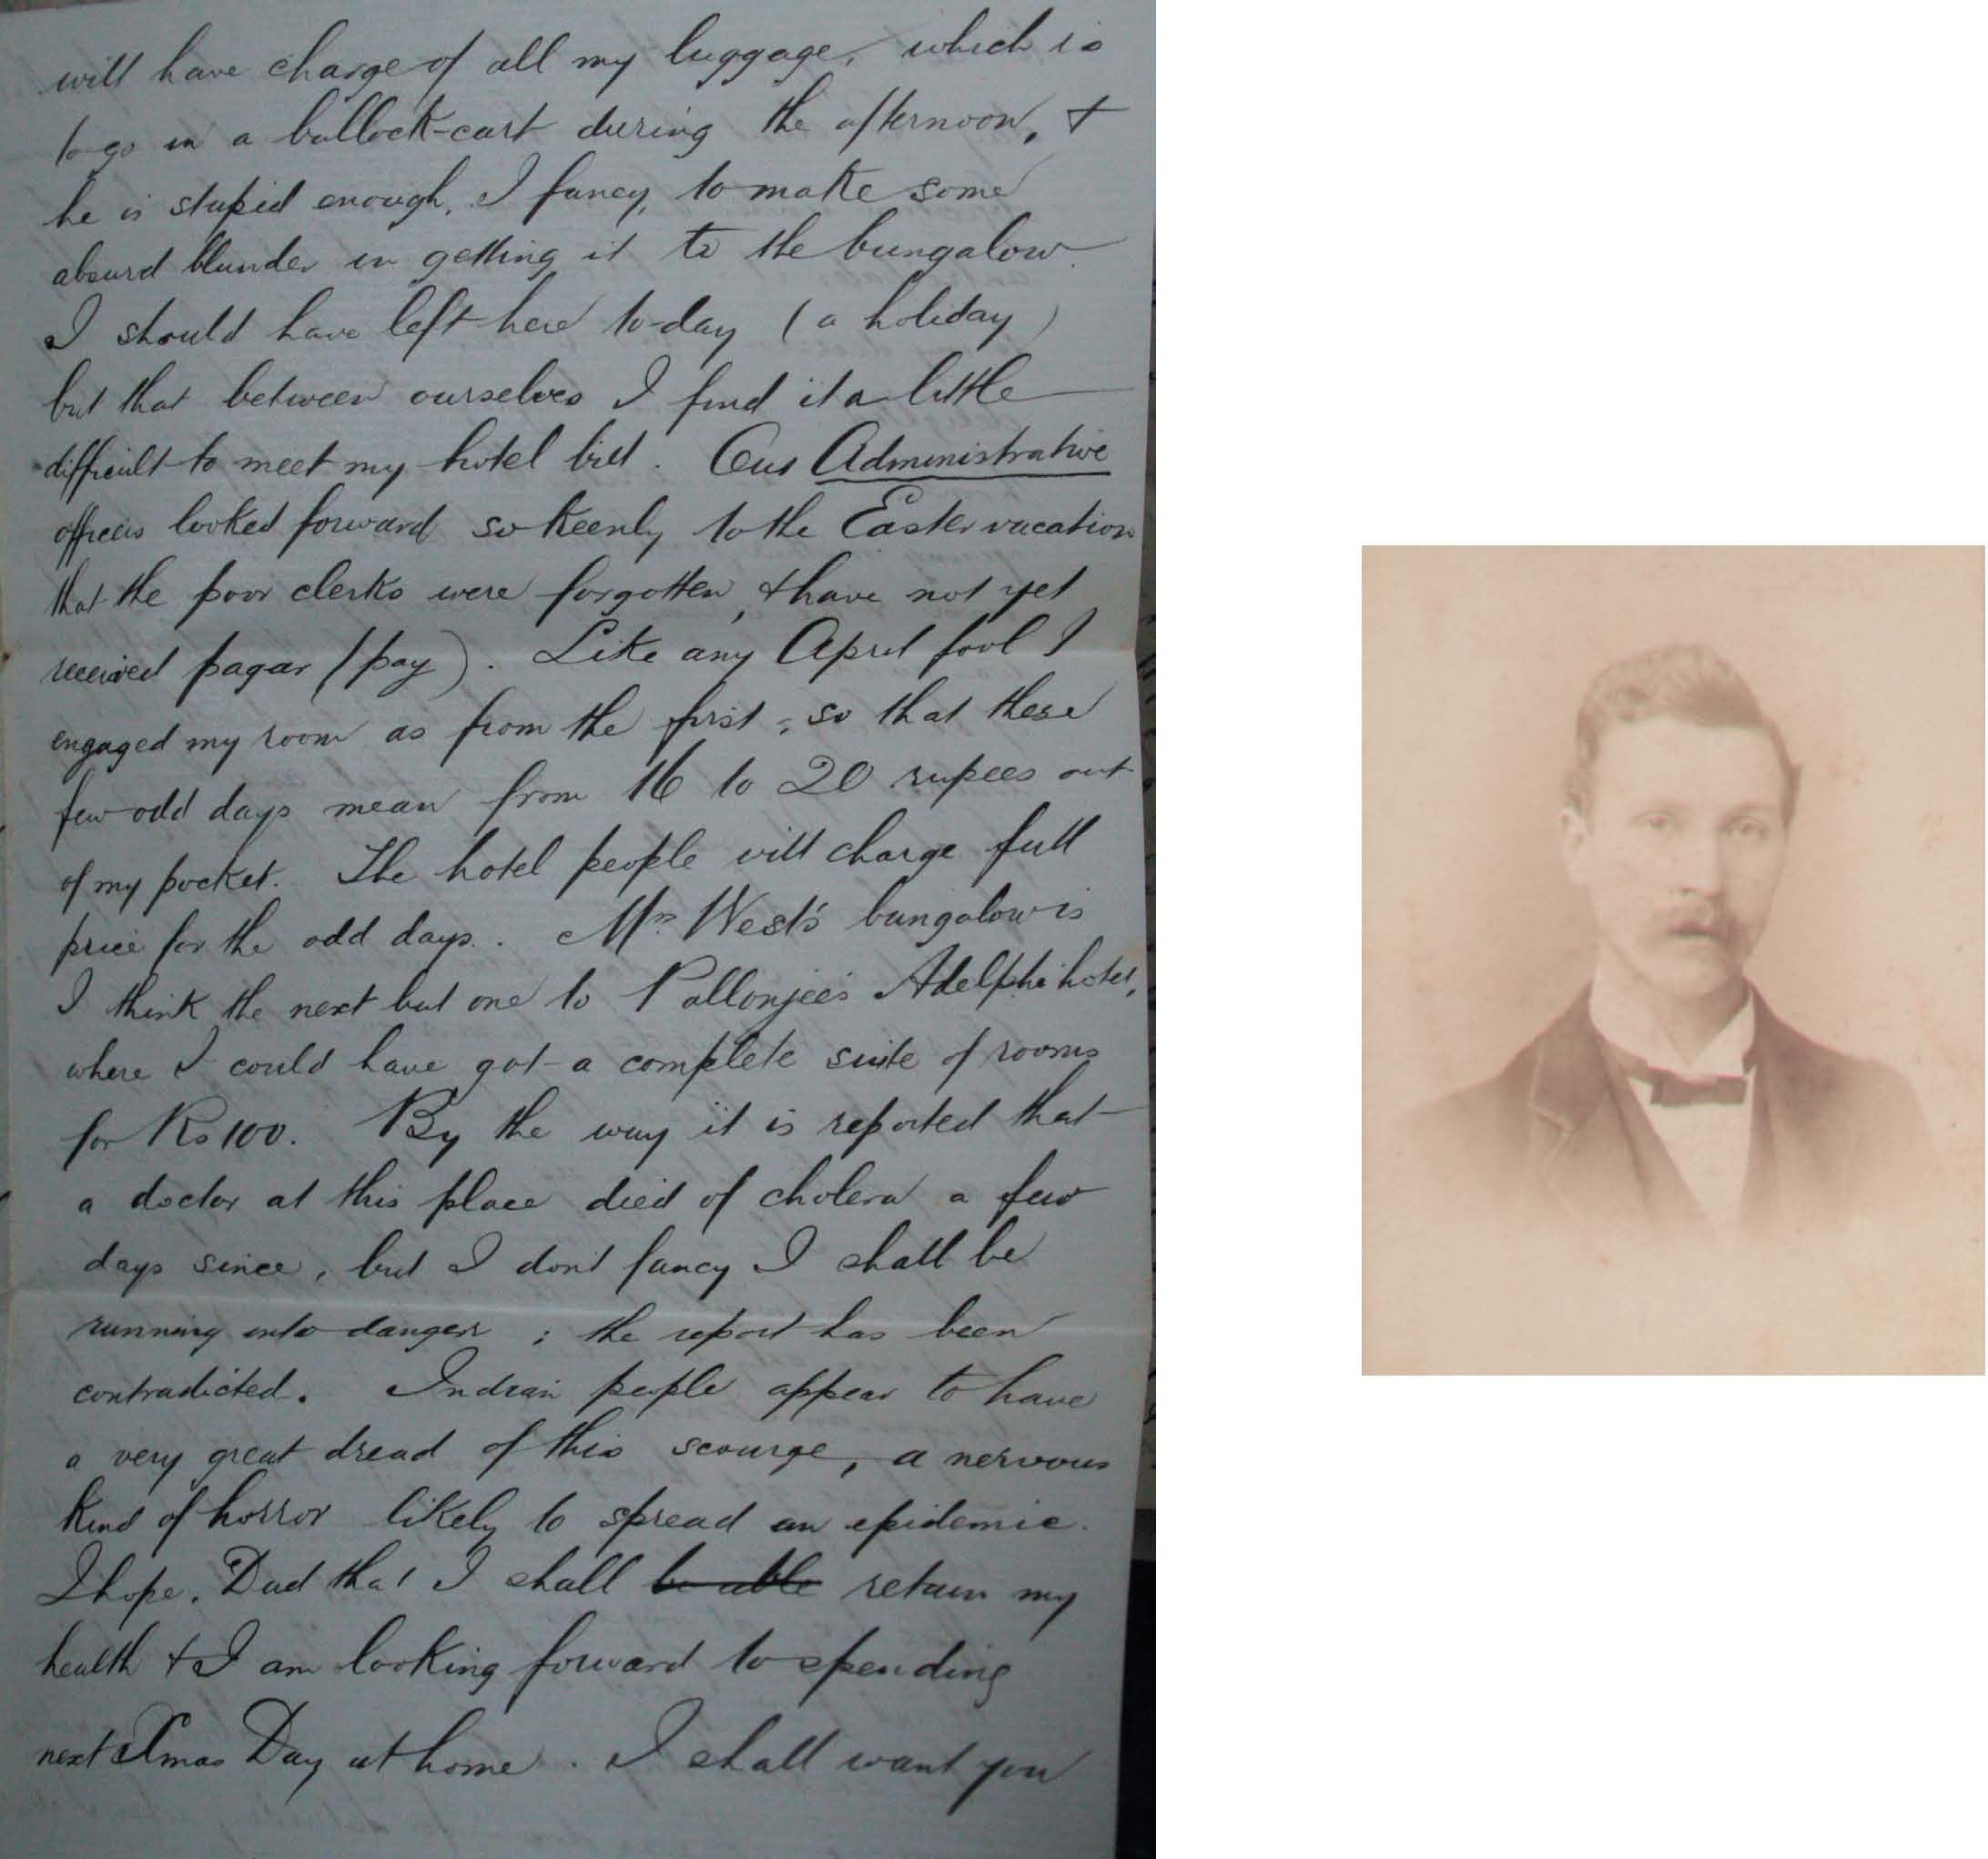 will have charge of all my luggage, which is
to go in a bullock-cart during the afternoon, +
he is stupid enough, I fancy, to make some
absurd blunder in getting it to the bungalow.
I should have left here to-day (a holiday)
but that between ourselves I find it a little
difficult to meet my hotel bill. Our Administrative
officers looked forward so keenly to the Easter vacation
that the poor clerks were forgotten, + have not yet
received pagar (pay). Like any April fool I
engaged my room as from the first, so that these
few odd days mean from 16 to 20 rupees out
of my pocket. The hotel people will charge full
price for the odd days. Mrs West's bungalow is
I think the next but one to Pallonjee's Adelphi hotel,
where I could have got a complete suite of rooms
for Rs 100. By the way it is reported that
a doctor at this place died of cholera a few
days since, but I don't fancy I shall be
running into danger; the report has been
contradicted. Indian people appear to have
a very great dread of this scourge, a nervous
kind of horror likely to spread an epidemic.
I hope, Dad that I shall be able retain my
health + I am looking forward to spending
next Xmas Day at home. I shall want you